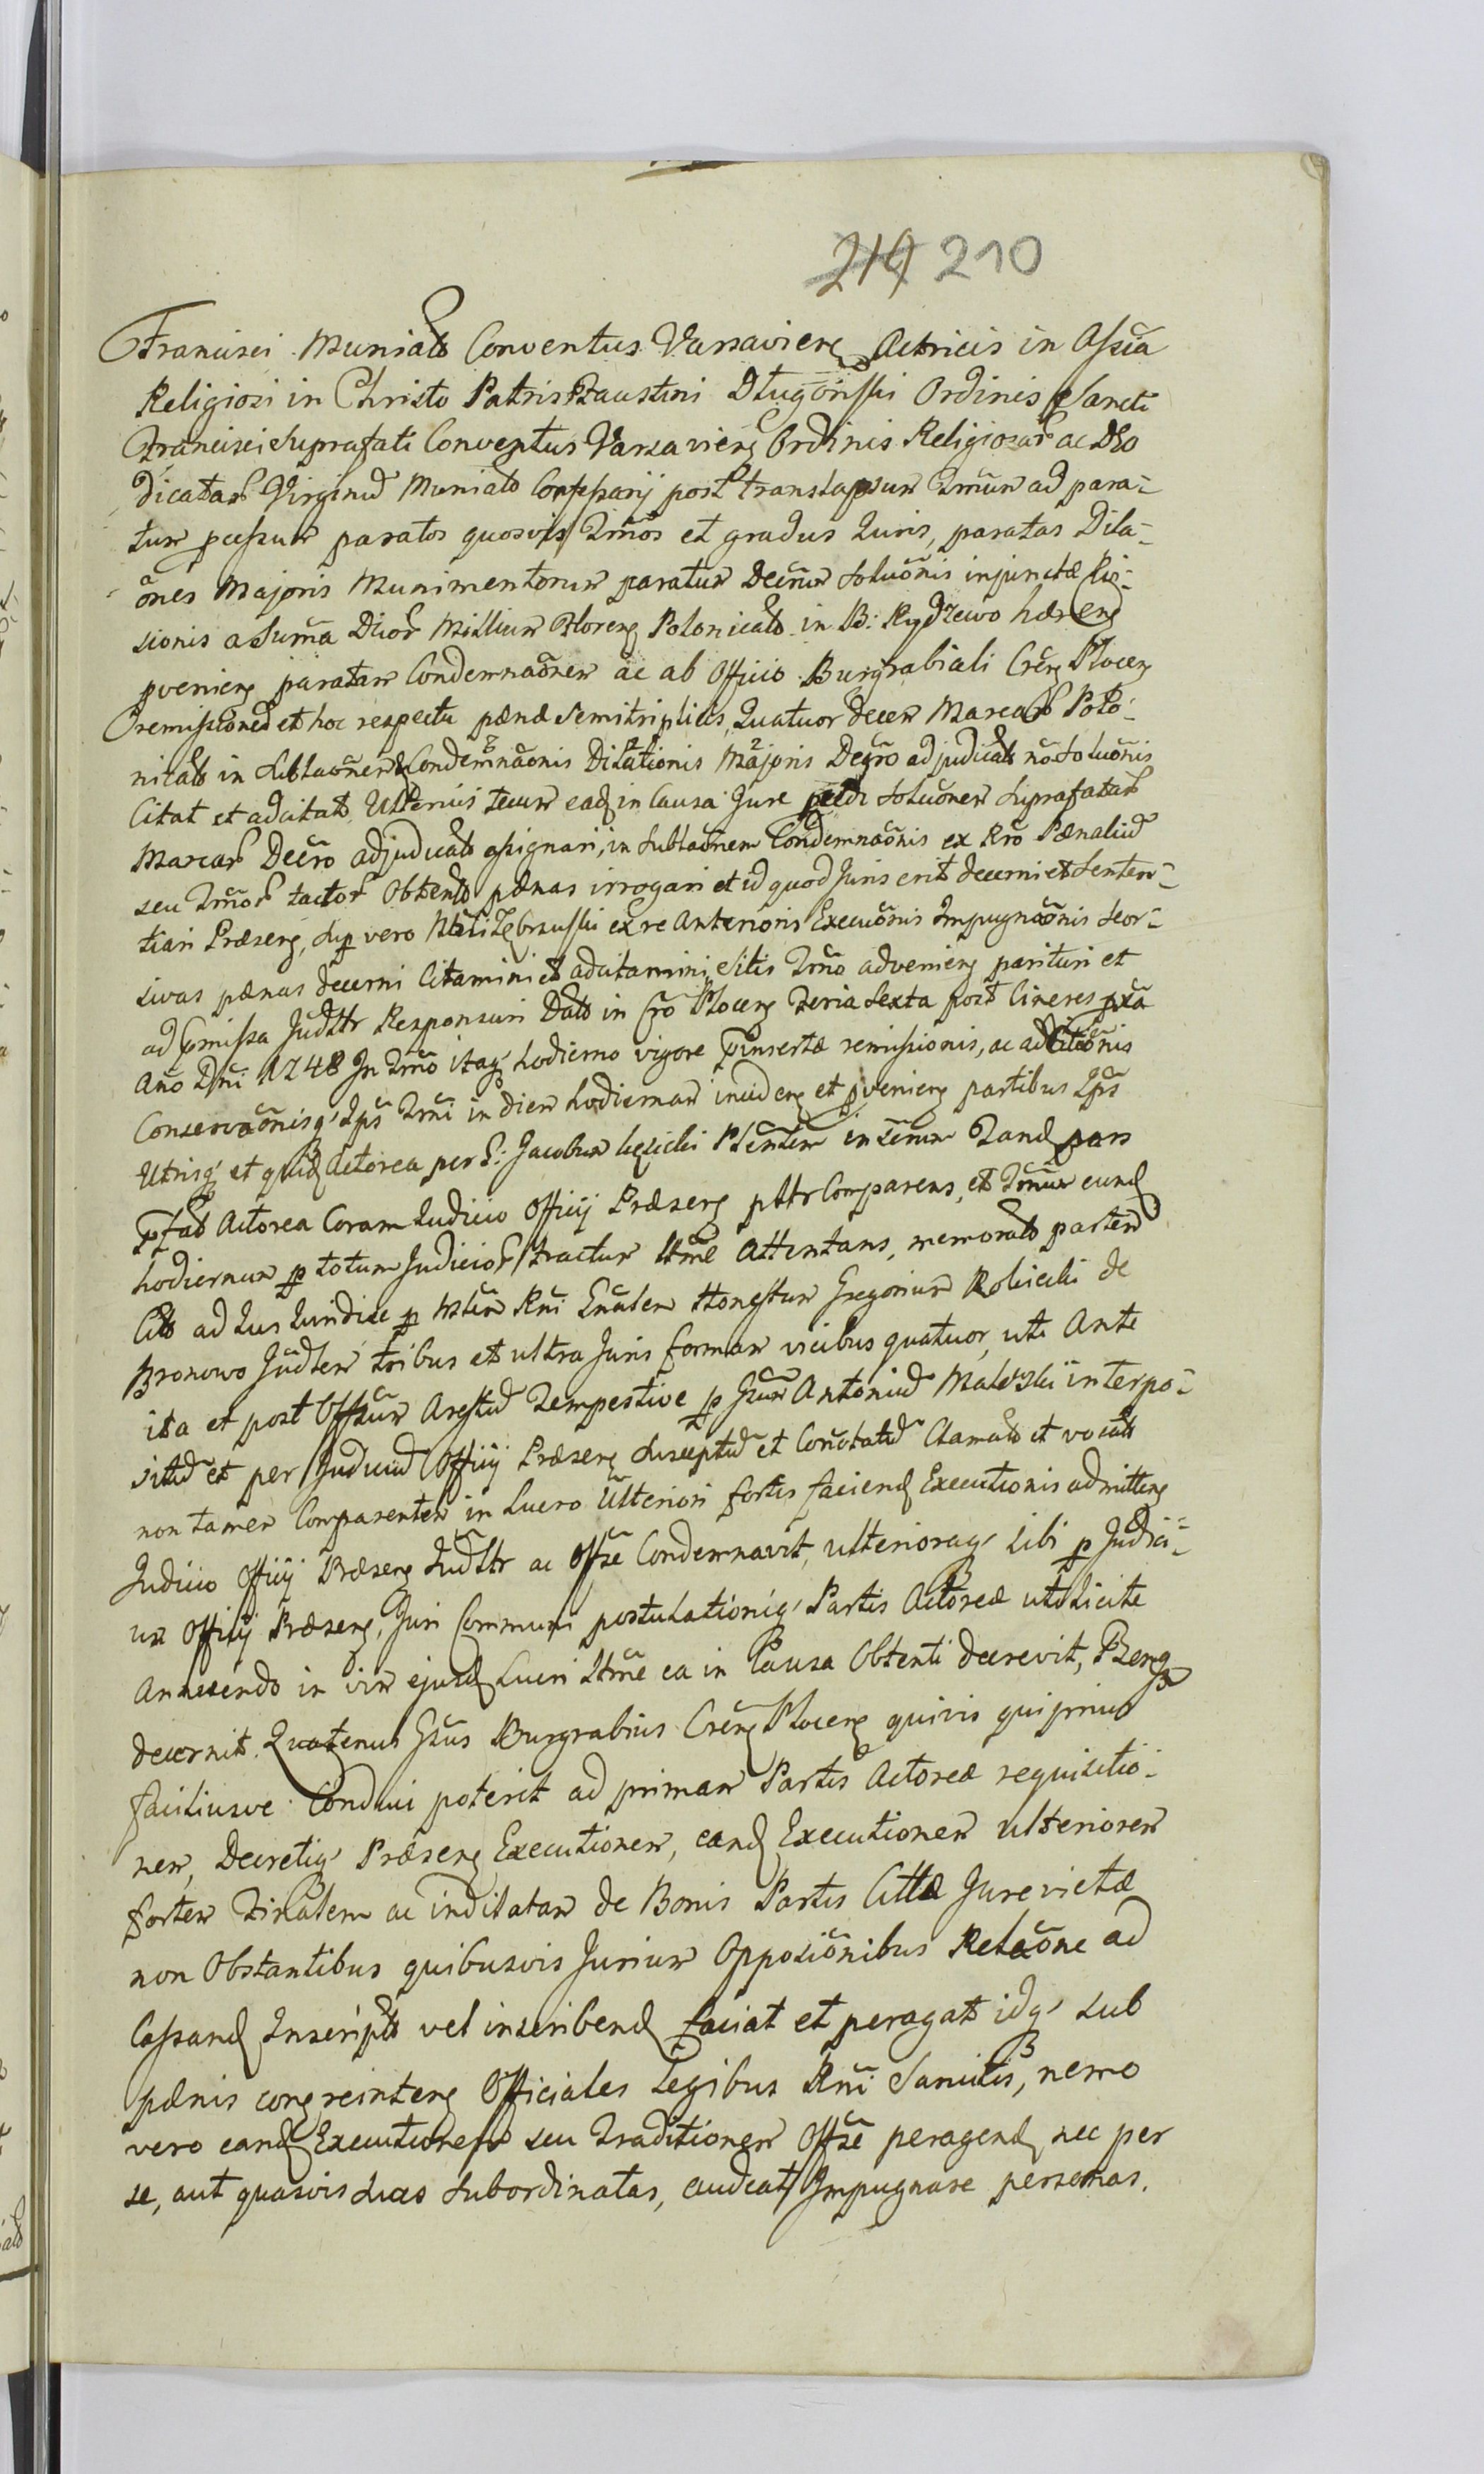 219 210
Francisci Munialt Conventus Varsavieng Actricis in Assia
Religiosi in Christo Patris Faustini Długoński Ordinis Sancti
Francisci Suprafati Conventus Varsavieng Ordinis Religiosar ac Deo
dicatar Virginũ Munialt Confessarij post translapsum Tm̃um ad para-
tum pcessum paratos quosvis Tm̃os et gradus Juris, paratas Dila-
õnes Majoris Munimentorum paratum Decr̃um Soluõnis injunctæ
sionis a Sum̃a Duor Millium Floreng Polonicalt in B: Rydzewo hæreng
pvenieng paratam Condemnaõnem ac ab Officio Burgrabiali Cr̃eng Ploceng
remissionẽ et hoc respectu pænæ Semitriplicis, Quatuor decem Marcar Polo-
nicalt in Sublaõnem Condemnaõnis Dilationis Majoris Decr̃o adjudicalt nõ Soluõnis
Citat et adcitat. Ulterius tecum eadꝫ in Causa Jure Soluõnem Suprafatar
Marcar Decr̃o adjudicalt assignari, in Sublaõnem Condemnaõnis ex Rr̃o Pænaliũ
seu Tm̃or tactor Obtent pænas irrogari et id quod Juris erit decerni et Senten-
tiari Præseng, Sup vero ex re Anterioris Execuõnis Impugnaõnis Seor-
sivas pænas decerni Citamini et adcitamini Sitis Tm̃o advenieng parituri et
ad pmissa Jud̃ltr Responsuri Dalt in Cr̃o Ploceng Feria Sexta post Cineres pxa
Año Dñi 1748 In Tm̃o itaqꝫ hodierno vigore pinsertæ remissionis, ac adcitaõnis
Conservaõnisqꝫ Ips̃ Tm̃i in diem hodiernam incideng et pvenieng partibus Ips̃
Utrisqꝫ et quidꝫ Actorea per G: Jacobum Plen̄tem Tandꝫ pars
pfat Actorea Coram Judicio Officij Præseng plttr Comparens, et Tm̃um eundꝫ
hodiernum p totum Judicior tractum ltm̃e Attentans, memorat partem
Cit ad Jus Juridice p Mler̃em Rñi Gñalem Honestum Gregorium Rokicki de
Bronowo Jud̃lem tribus et ultra Juris formam vicibus quatuor, uti Ante
ita et post Offsum Arestũ Tempestive p Gsum Antoniũ Malewski interpo-
sitũ et per Judiciũ Officij Præseng Susceptũ et Connotatũ Clamat et vocat
non tamen Comparentem in Lucro Ulteriori fortis faciendꝫ Executionis admitteng
Judicio Officij Præseng Jud̃ltr ac Offse Condemnavit, ulterioraqꝫ Sibi p Judici-
um Officij Præseng, Juri Communi postulationiqꝫ Partis Actoreæ uti licite
Annuendo in vim ejusdꝫ Lucri ltm̃e ea in Causa Obtenti decrevit,
decernit. Quatenus Gsus Burgrabius Cr̃eng Ploceng quivis qui prius
faciliusve Conduci poterit ad primam Partis Actoreæ requisitio-
nem, Decretiqꝫ Præseng Executionem, eandꝫ Executionem ulteriorem
fortem Finalem ac inditatam de Bonis Partis Citatæ Jurevictæ
non Obstantibus quibusvis Jurium Opposiõnibus Relaõne ad
Cassandꝫ Inscript vel inscribendꝫ faciat et peragat idqꝫ sub
pænis congreinteng Officiales Legibus Rñi Sancitis, nemo
vero eandꝫ Executionem seu Traditionem Offse peragendꝫ nec per
se, aut quasvis suas Subordinatas, audeat Impugnare personas.